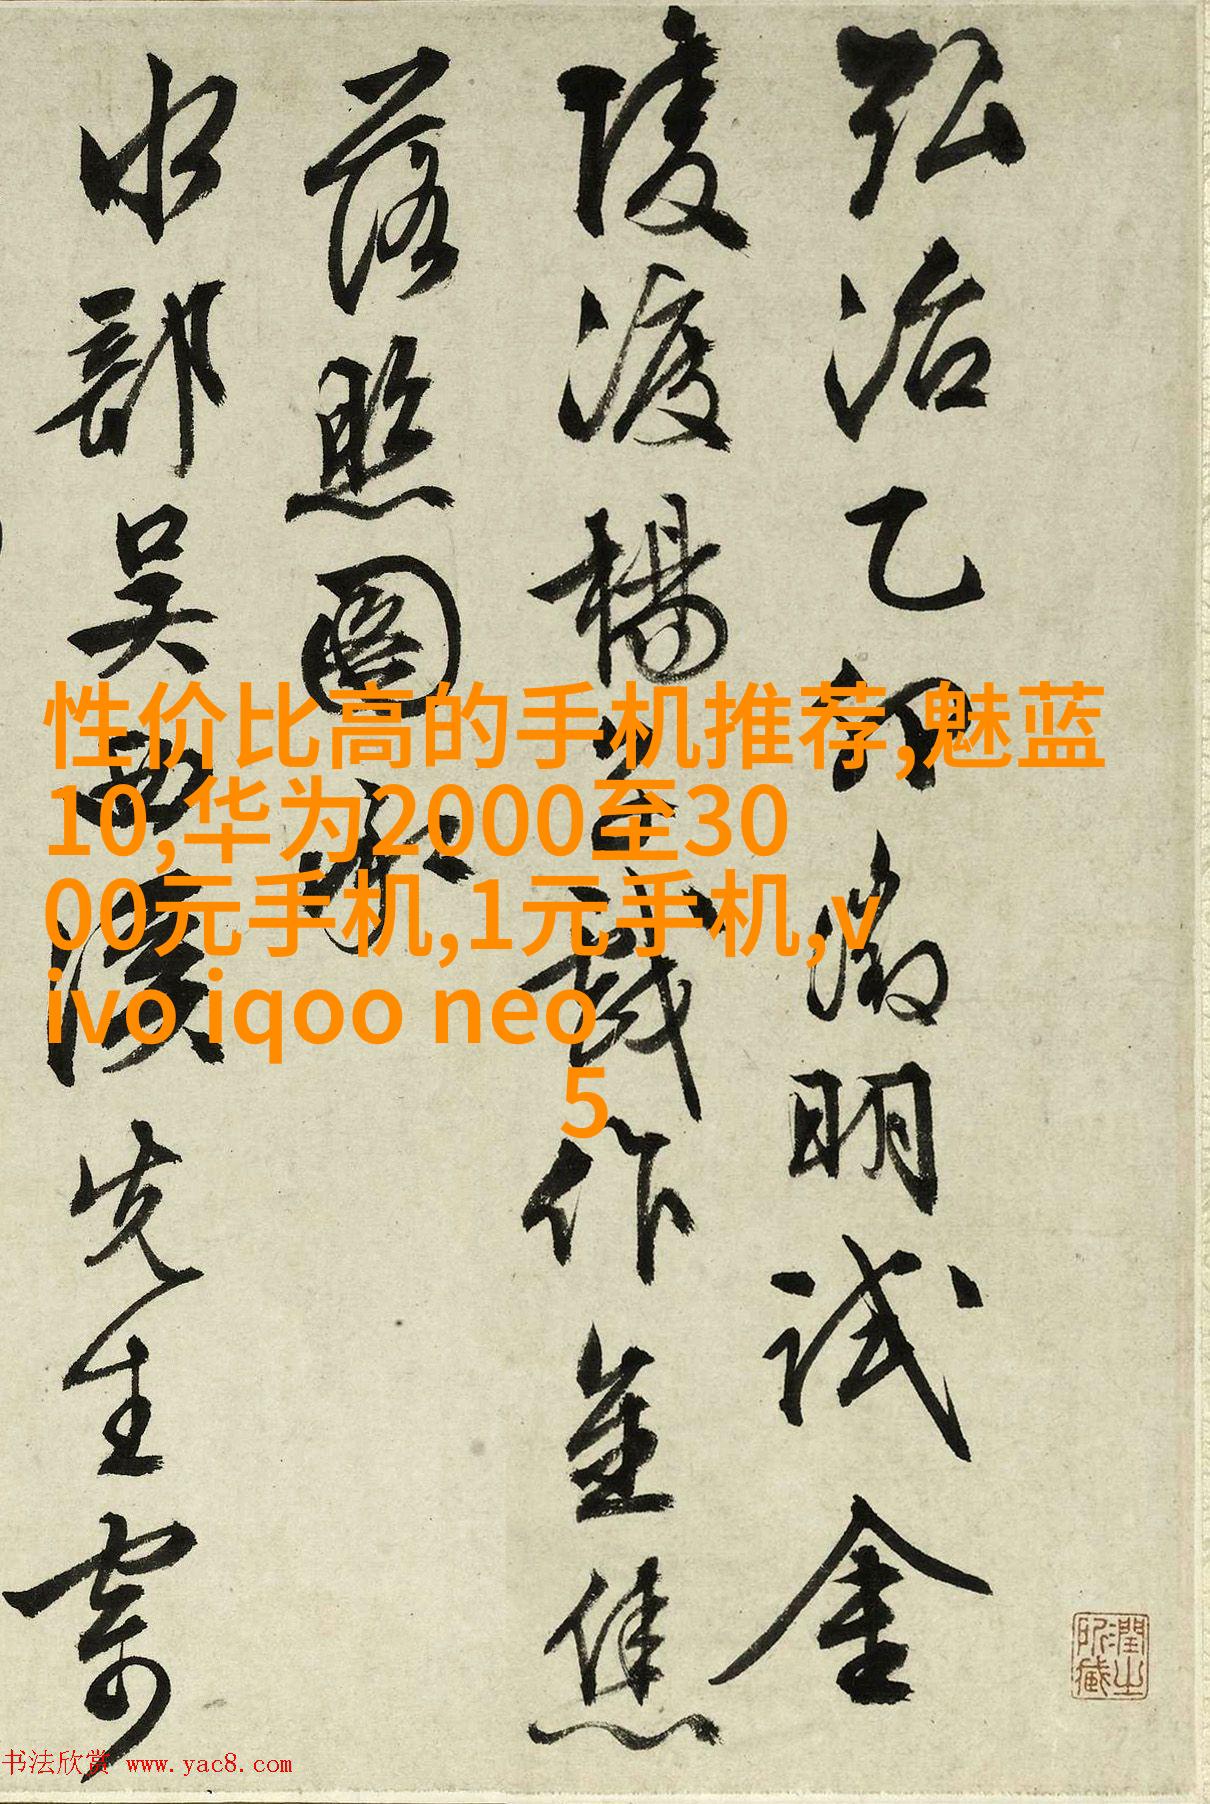 弘治乙卯徵明試金
陵渡楊子戲作金焦
落照圖
水部吳西溪先生寄
性价比高的手机推荐,魅蓝
10,华为2000至30
00元手机,1元手机,v
ivo iqoo neo
5
潤之
所藏
书法欣赏 www.yac8.com